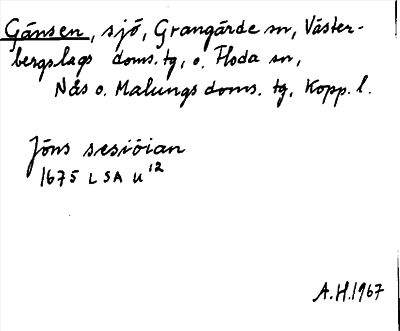 Gänsen, sjö, Grangärde sn, Väster-
bergslags doms. tg, o. Floda sn,
Nås o. Malungs doms. tg, Kopp. l.
Jöns sesiöian
1675 LSA U 12
A.H. 1967